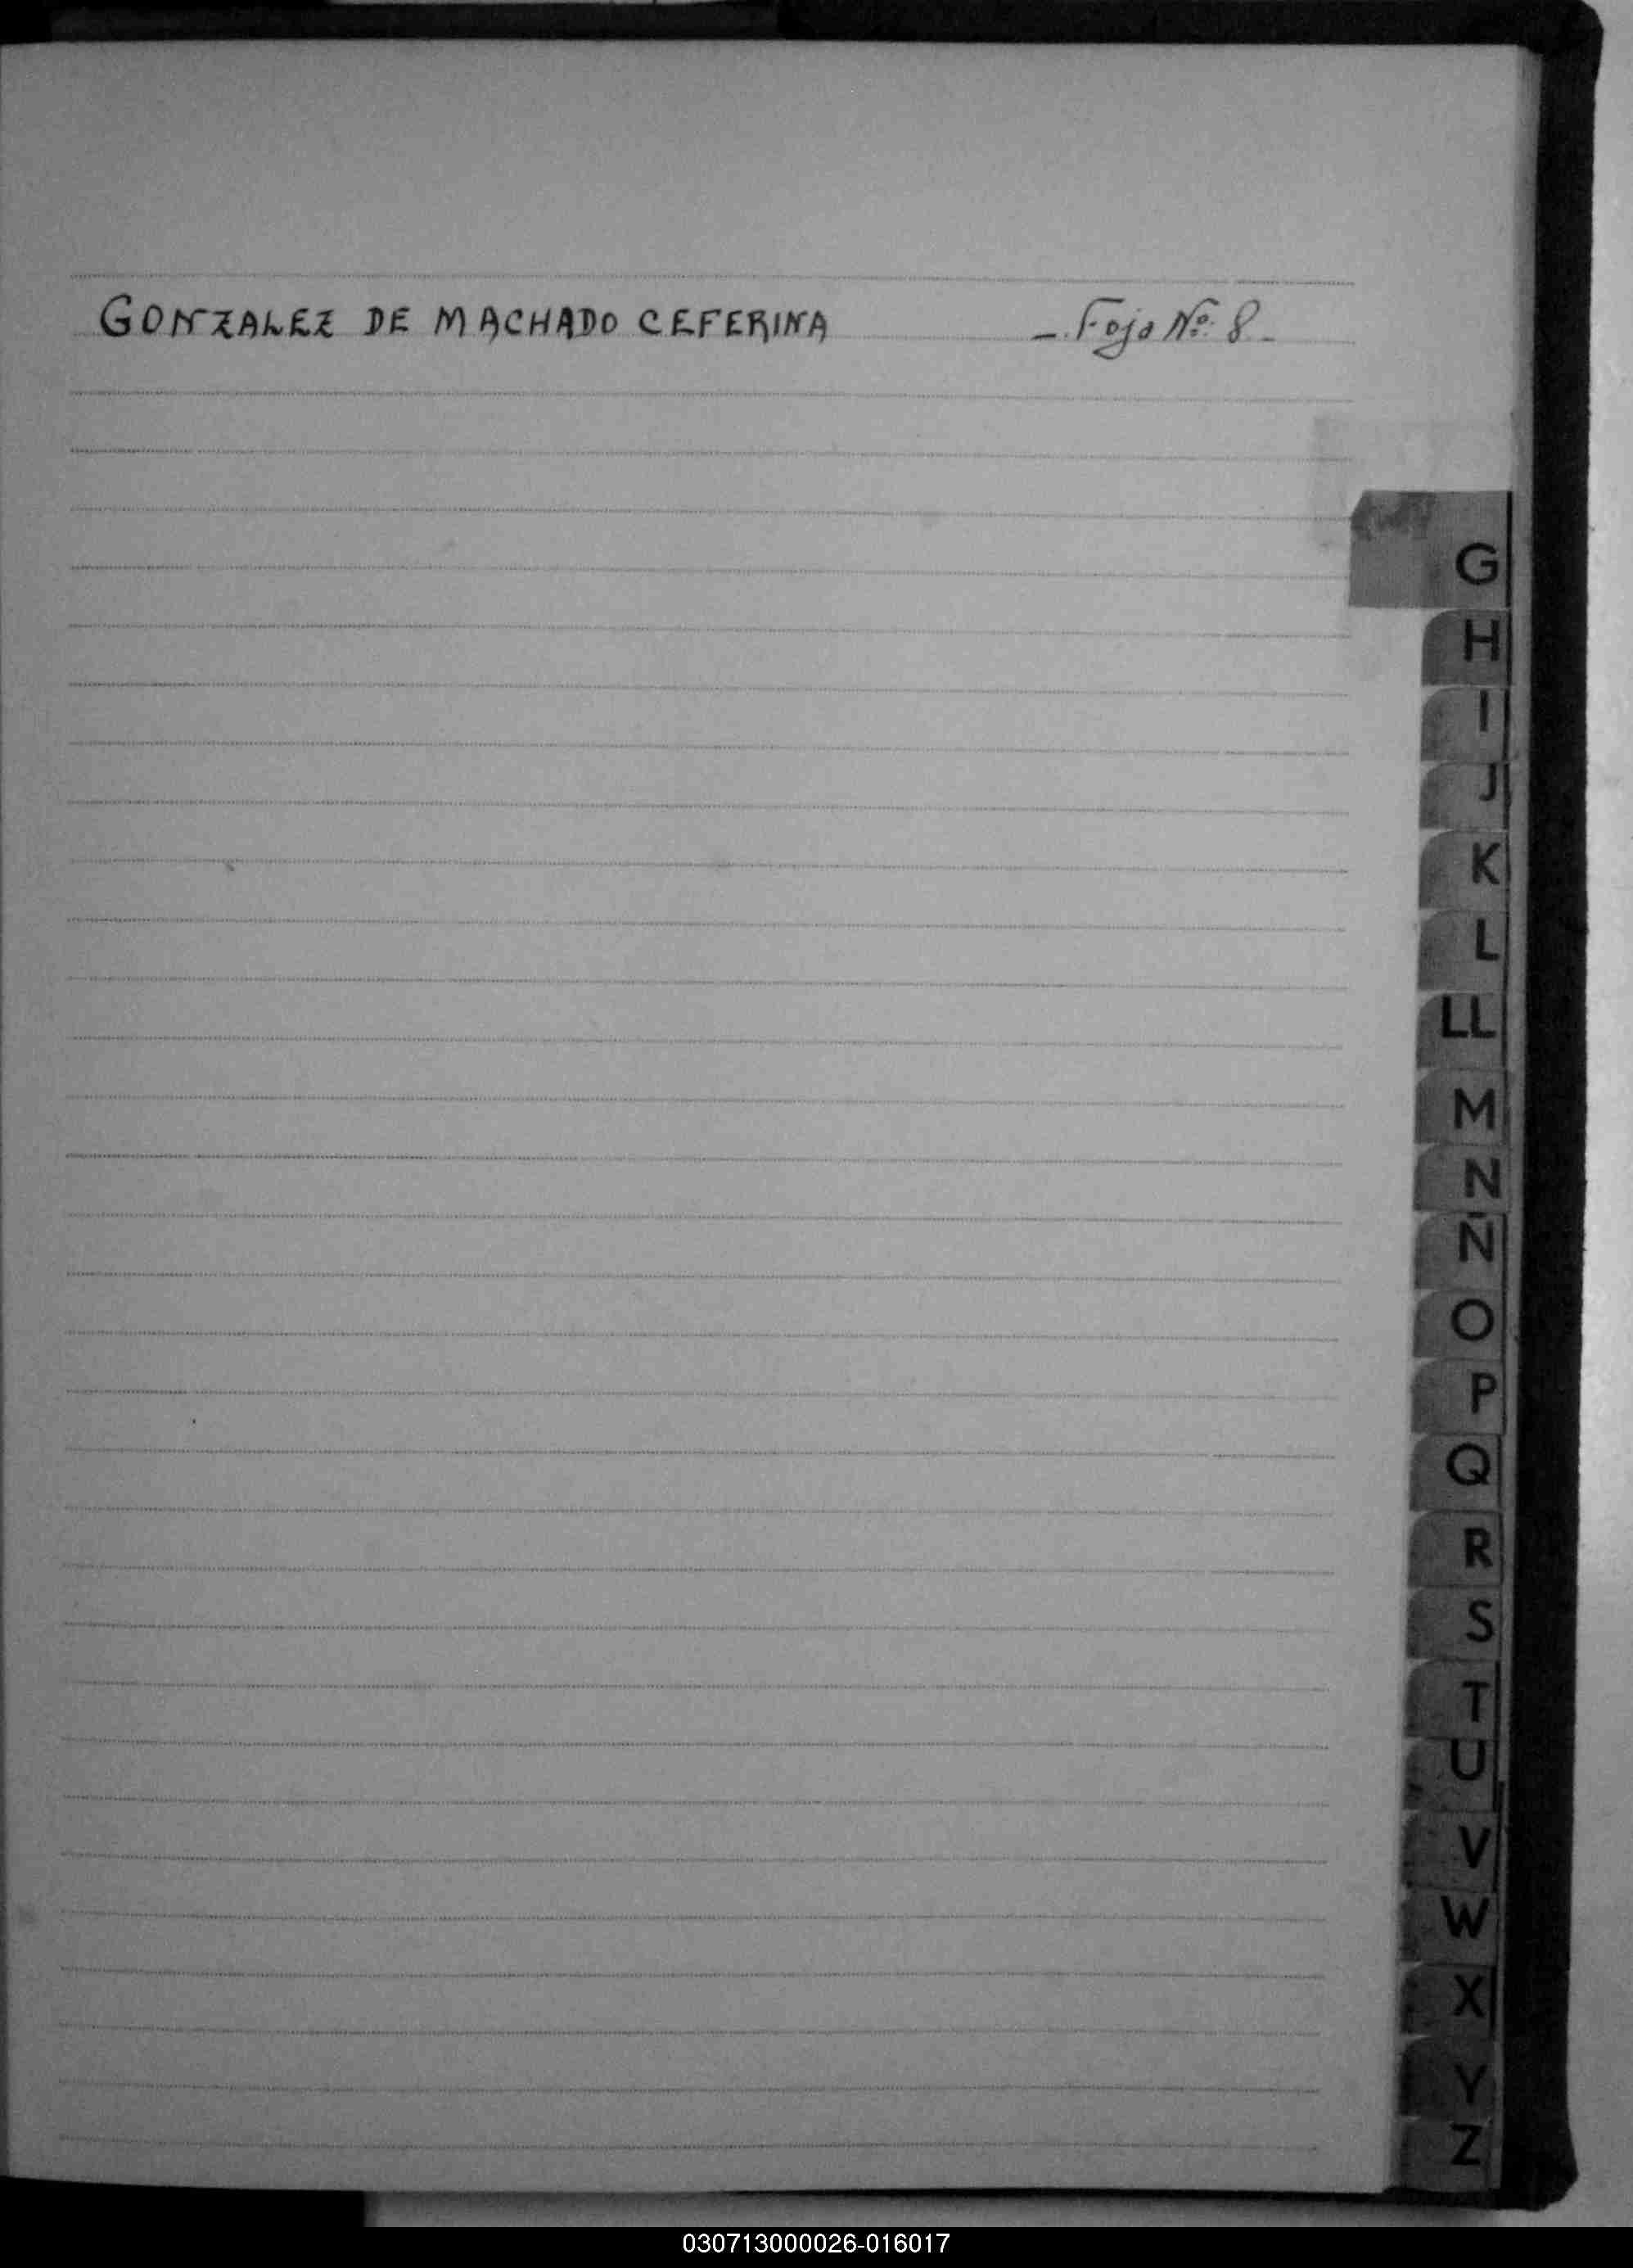 GONZALEZ DE MACHADO CEFERINA - Foja Nº 8 -
G
H
I
J
K
L
LL
M
N
Ñ
O
P
Q
R
S
T
U
V
W
X
Y
Z
030713000026-016017